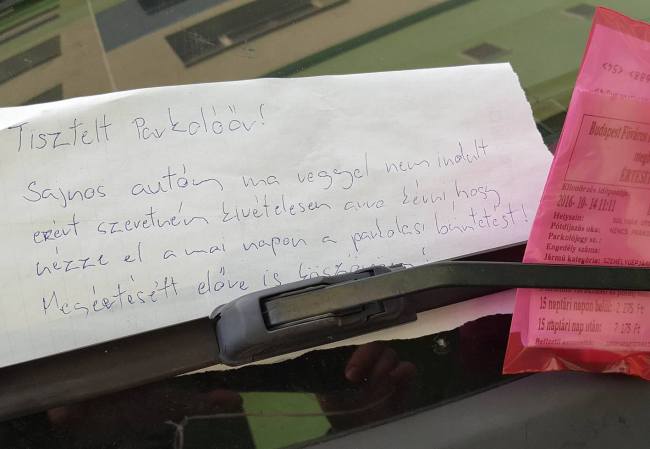 Tisztelt Parkolóőr!
Sajnos autóm ma reggel nem indult
ezért szeretném kivételesen arra kérni, hogy
nézze el a mai napon a parkolási büntetést!
Megértését előre is köszönöm!
Budapest Főváros
ÉRTESÍT
Ellenőrzés időpontja:
2016-10-14 11:11
Helyszín:
Pótdíjazás oka: NINCS PARK
Parkolójegy sz.:
Engedély száma:
Jármű kategória: SZEMÉLYGÉPJÁ
15 naptári napon belül:
15 naptári nap után: 275 Ft